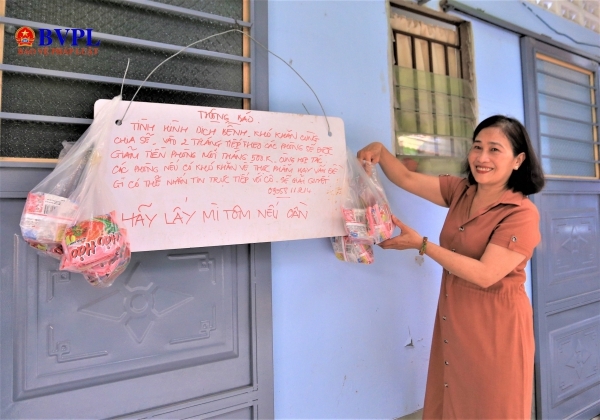 BVPL
BẢO VỆ PHÁP LUẬT
THÔNG BÁO
TÌNH HÌNH DỊCH BỆNH. KHÓ KHĂN CÙNG
CHIA SẺ, VẬY 2 THÁNG TIẾP THEO CÁC PHÒNG SẼ ĐƯỢC
GIẢM TIỀN PHÒNG MỖI THÁNG 500K.
CÁC PHÒNG NẾU CÓ KHÓ KHĂN VỀ THỰC PHẨM HAY VẤN ĐỀ
GÌ CÓ THỂ NHẮN TIN TRỰC TIẾP VỚI CÔ. SẼ GIẢI QUYẾT
HÃY LẤY MÌ TÔM NẾU CẦN
Hảo Hảo